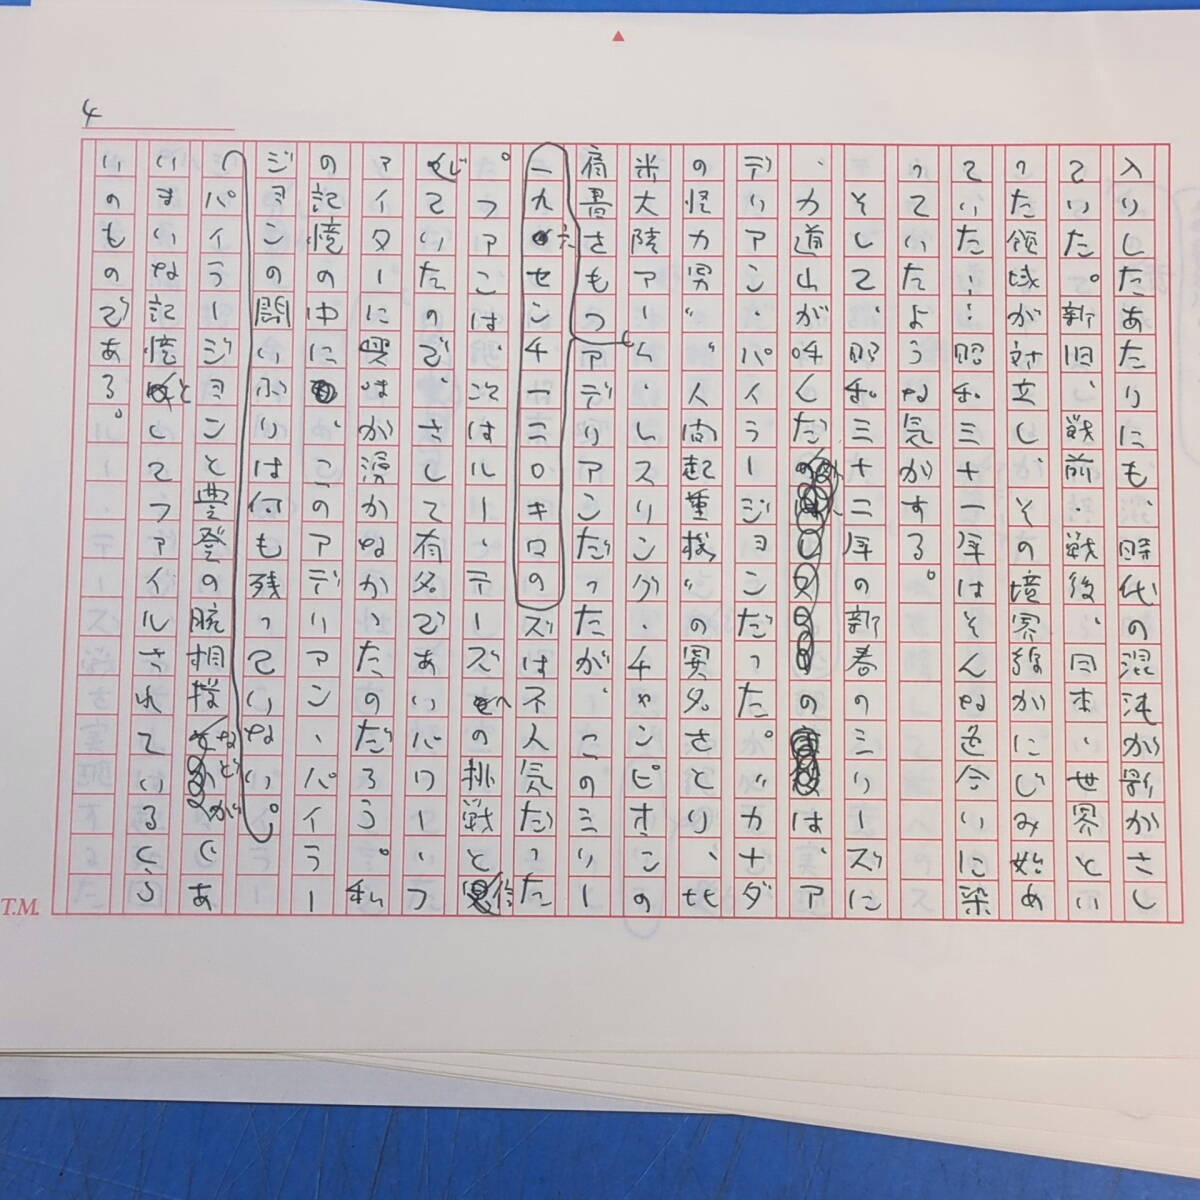 4
入りしたあたりにも、時代の混沌が影がさし
ていた。新旧、戦前・戦後、日本、世界とい
った領域が対立し、その境界線がにじみ始め
ていた……昭和三十一年はそんな色合いに染
っていたような気がする。
そして、昭和三十二年の新春のシリーズに
、力道山が呼んだのは、ア
ドリアン・バイラージョンだった。〝カナダ
の怪力男〟〝人間起重機〟の異名をとり、北
米大陸アーム・レスリング・チャンピオンの
肩書きもつアドリアンだったが、このシリー
一九〇センチ一二〇キロの
ズは不人気だった
。ファンは、次はルー・テーズへの挑戦と信
じていたので、さして有名でないパワー・フ
ァイターに興味がわかなかったのだろう。私
の記憶の中に、このアドリアン・バイラー
ジョンの闘いぶりは何も残っていない。
バイラージョンと豊登の腕相撲などが、あ
いまいな記憶としてファイルされているくら
いのものである。
T.M.